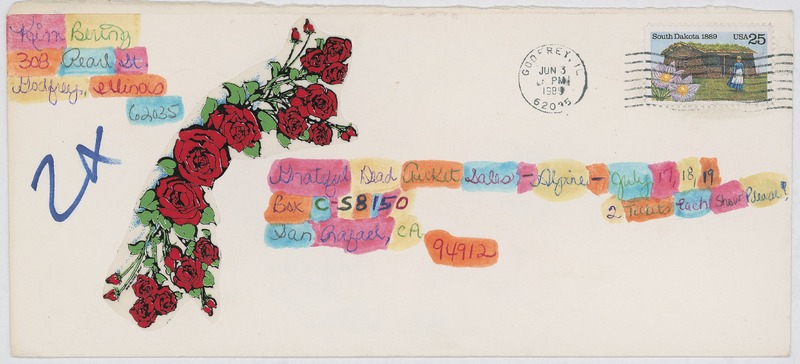 Kim Bering
308 Pearl St
Godfrey, Illinois
62035
2x
GODFREY, IL
JUN 3
PM
1989
62035
South Dakota 1889 USA 25
Grateful Dead Ticket Sales - Alpine - July 17, 18, 19
Box C-S8150
2 Tickets Each Show Please!
San Rafael, CA
94912